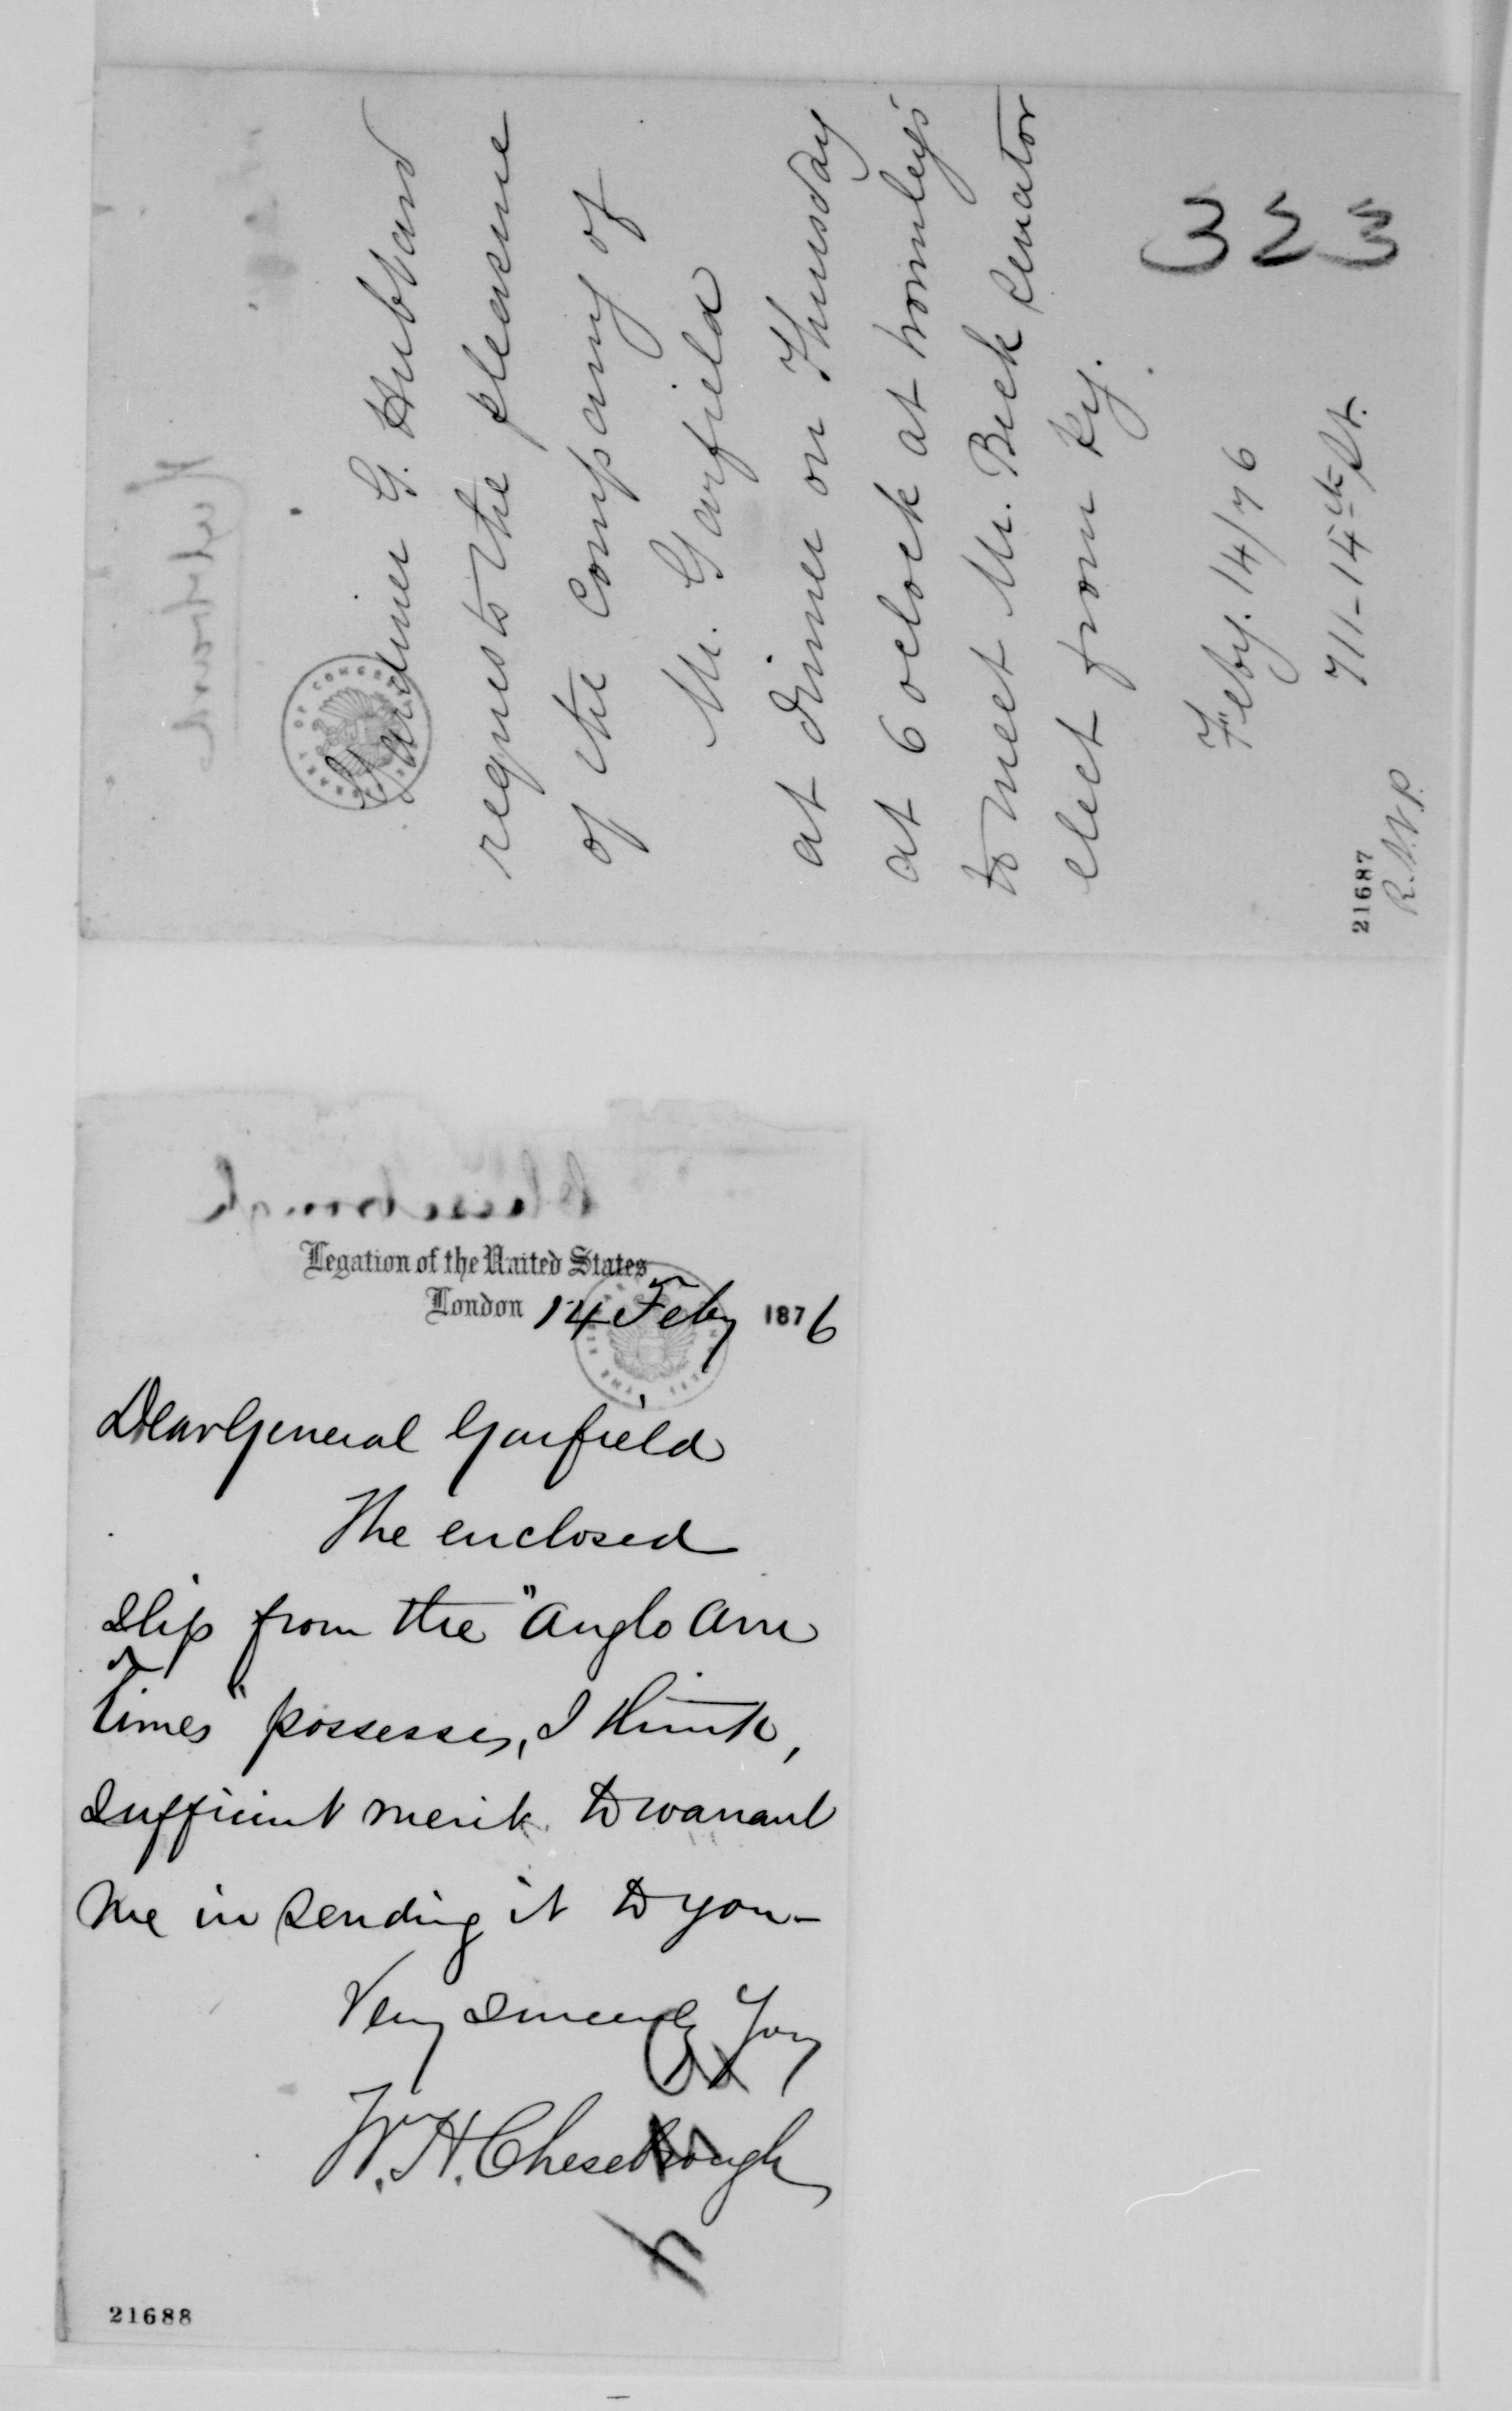 Gardiner G. Hubbard
requests the pleasure
of the company of
Mr. Garfield
at dinner on Thursday
at 6 oclock at Wormley's
to meet Mr. Beck Senator
elect from Ky.
Feby. 14/76
711-14th St.
R.S.V.P.
21687
323
Hubbard
Chesebrough
Legation of the United States
London 14 Feby 1876
Dear General Garfield
The enclosed
slip from the "Anglo Am
Times" possesses, I think,
sufficient merit to warrant
me in sending it to you-
Very Sincerely Yours
W. H. Chesebrough
21688